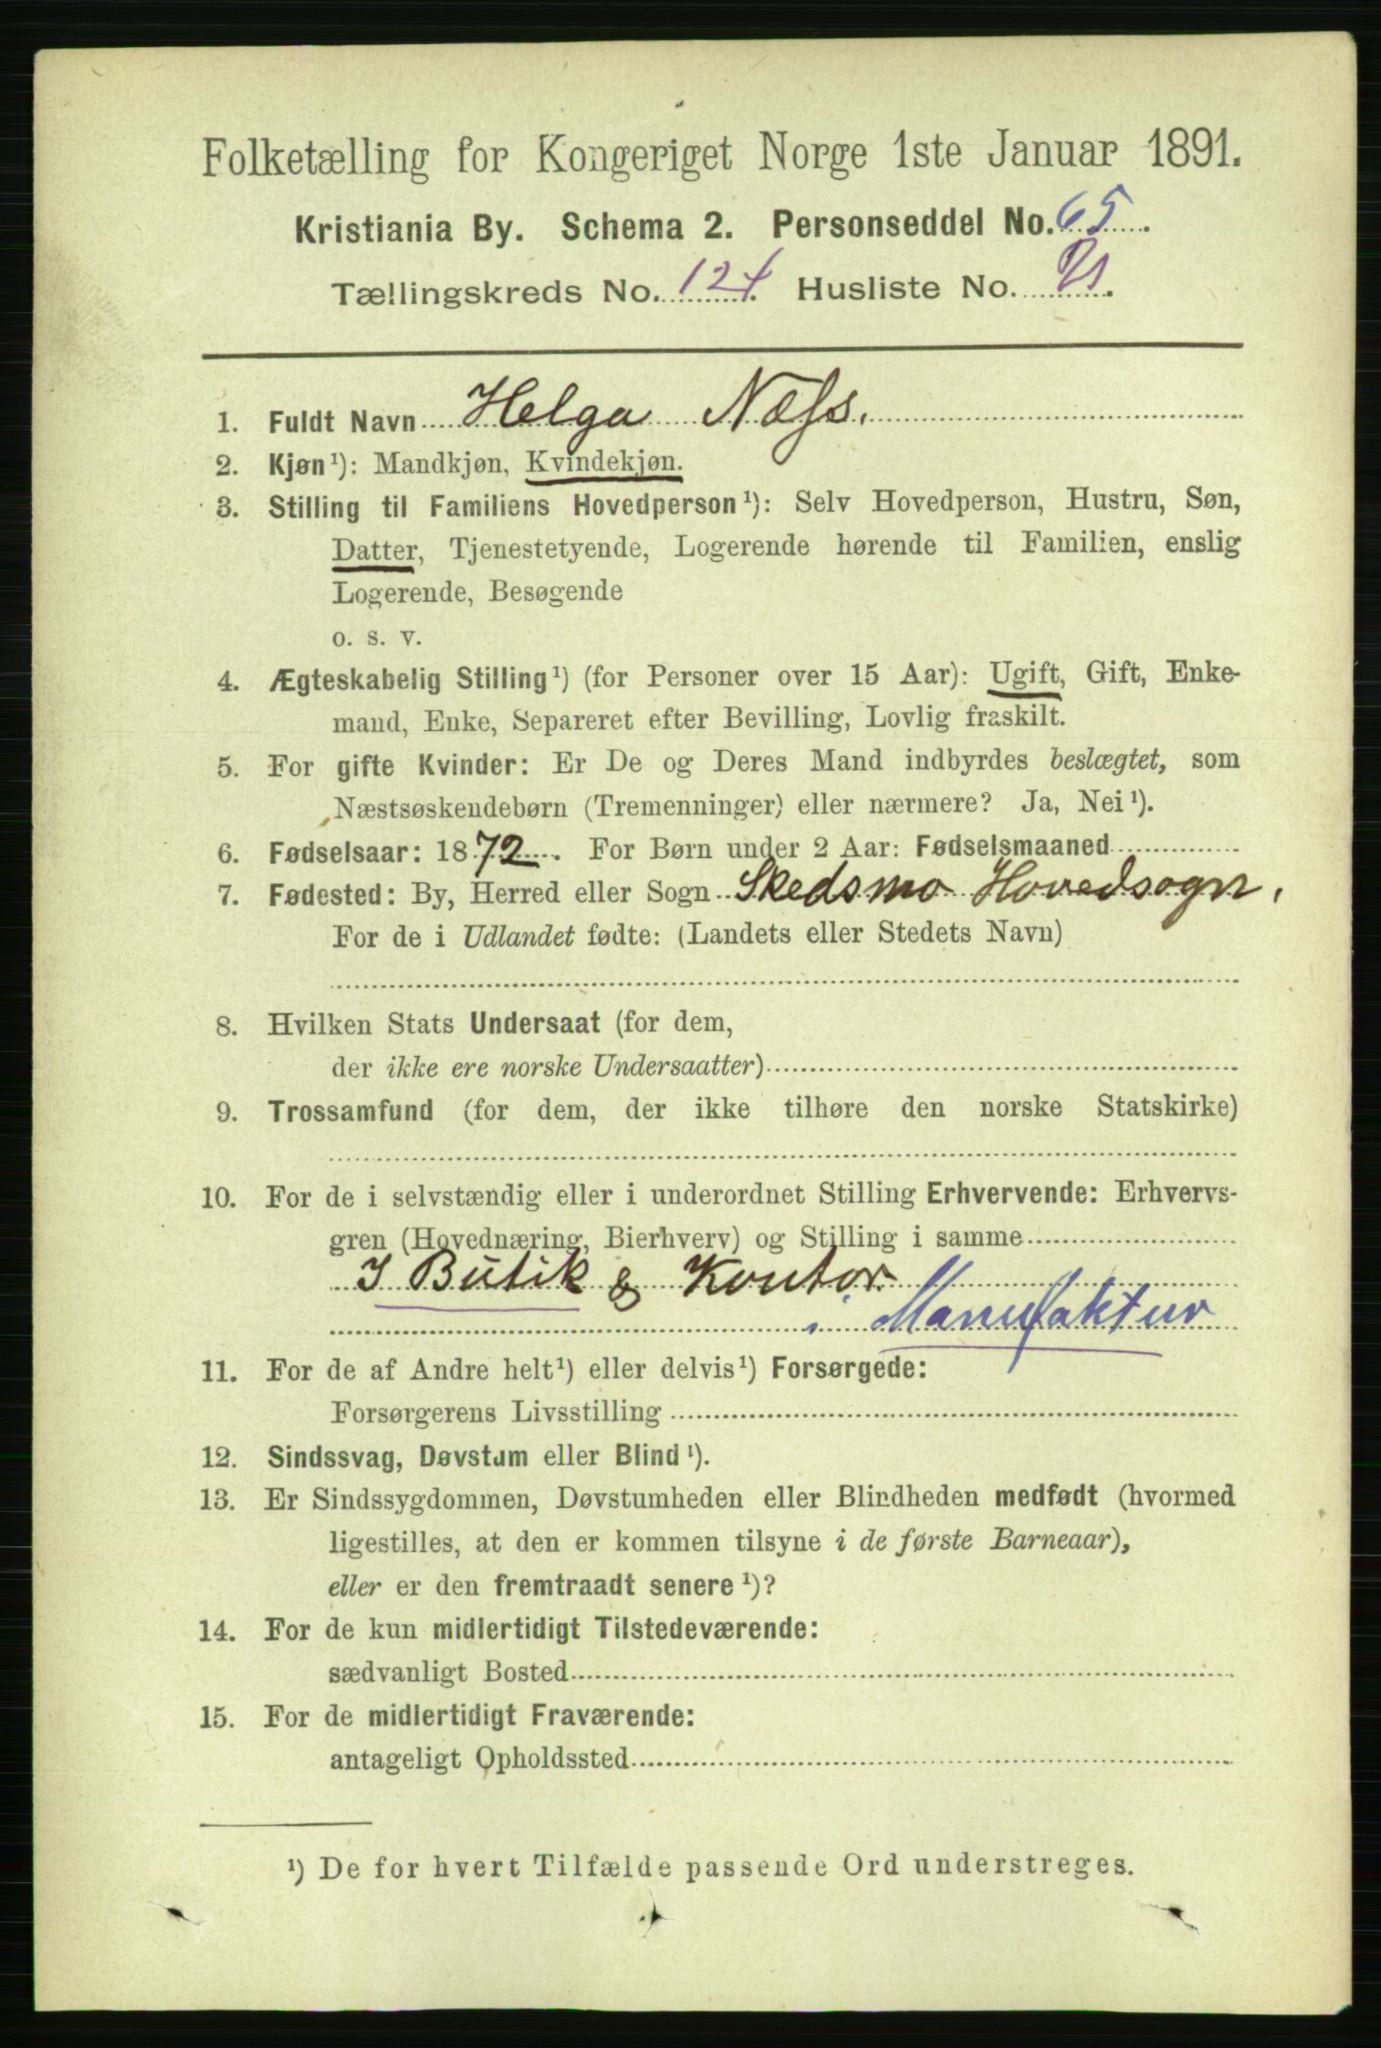 Folketælling for Kongeriget Norge 1ste Januar 1891.
Kristiania By. Schema 2. Personseddel No. 65.
Tællingskreds No. 124. Husliste No. 21.
1. Fuldt Navn Helga Næss.
2. Kjøn¹): Mandkjøn, Kvindekjøn.
3. Stilling til Familiens Hovedperson¹): Selv Hovedperson, Hustru, Søn,
Datter, Tjenestetyende, Logerende hørende til Familien, enslig
Logerende, Besøgende
o. s. v.
4. Ægteskabelig Stilling¹) (for Personer over 15 Aar): Ugift, Gift, Enke-
mand, Enke, Separeret efter Bevilling, Lovlig fraskilt.
5. For gifte Kvinder: Er De og Deres Mand indbyrdes beslægtet, som
Næstsøskendebørn (Tremenninger) eller nærmere? Ja, Nei¹).
6. Fødselsaar: 1872. For Børn under 2 Aar: Fødselsmaaned
7. Fødested: By, Herred eller Sogn Skedsmo Hovedsogn.
For de i Udlandet fødte: (Landets eller Stedets Navn)
8. Hvilken Stats Undersaat (for dem,
der ikke ere norske Undersaatter)
9. Trossamfund (for dem, der ikke tilhøre den norske Statskirke)
10. For de i selvstændig eller i underordnet Stilling Erhvervende: Erhvervs-
gren (Hovednæring, Bierhverv) og Stilling i samme
I Butik & Kontor.
i Manufaktur
11. For de af Andre helt¹) eller delvis¹) Forsørgede:
Forsørgerens Livsstilling
12. Sindssvag, Døvstum eller Blind¹).
13. Er Sindssygdommen, Døvstumheden eller Blindheden medfødt (hvormed
ligestilles, at den er kommen tilsyne i de første Barneaar),
eller er den fremtraadt senere¹)?
14. For de kun midlertidigt Tilstedeværende:
sædvanligt Bosted
15. For de midlertidigt Fraværende:
antageligt Opholdssted
¹) De for hvert Tilfælde passende Ord understreges.